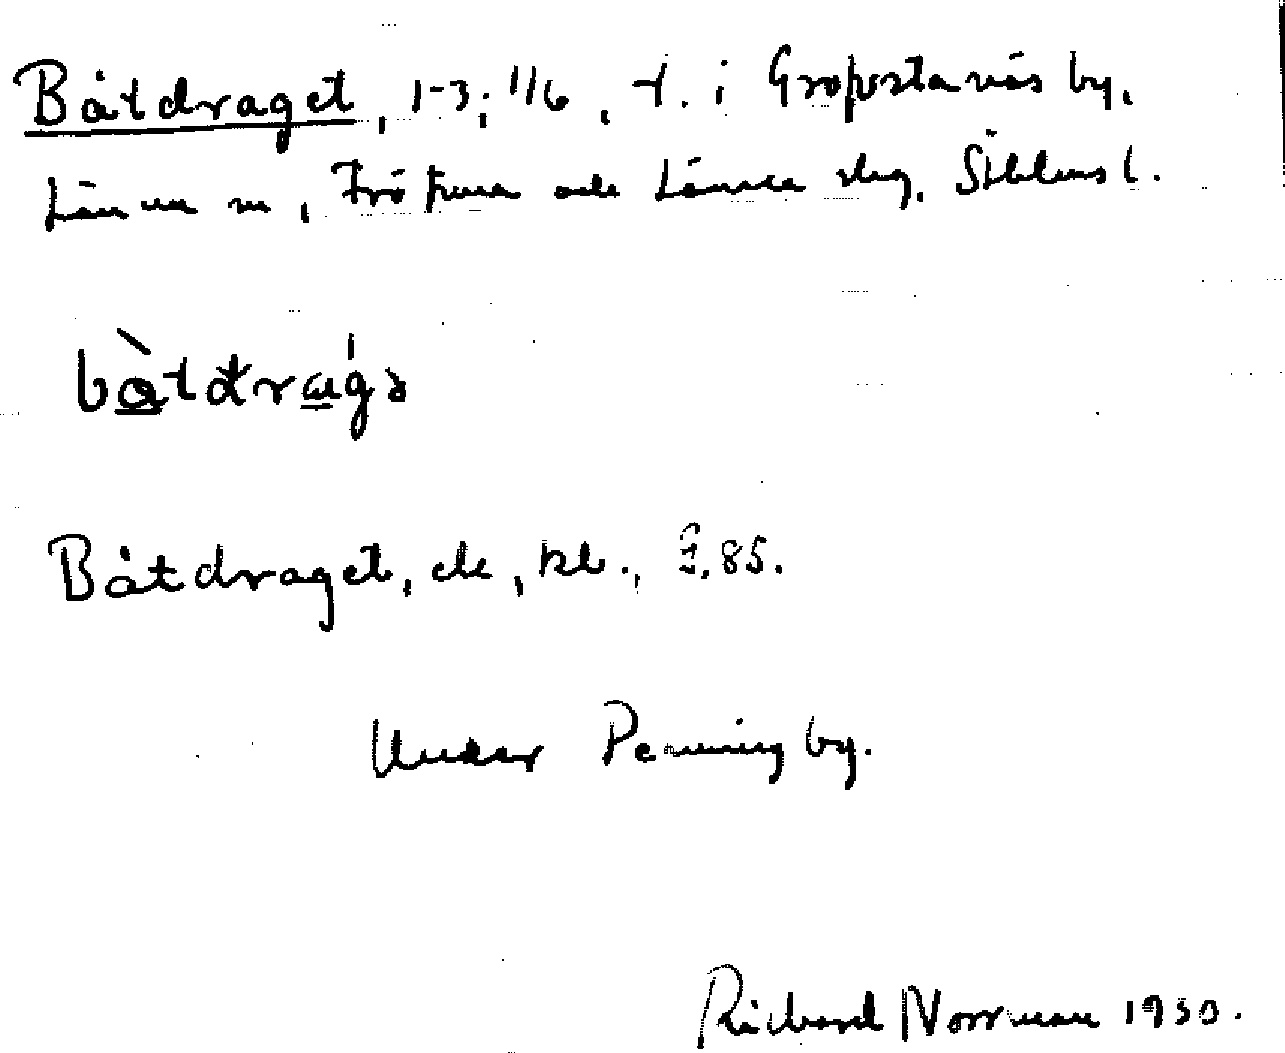 Båtdraget, 1-3; 1/6, t. i Gropstanäs by,
Länna sn, Frötuna och Länna skg. Sthlms l.
bå̀tdrag̍ə
Båtdraget, ek, kb., I,85.
Under Penningby.
Richard Norrman 1930.